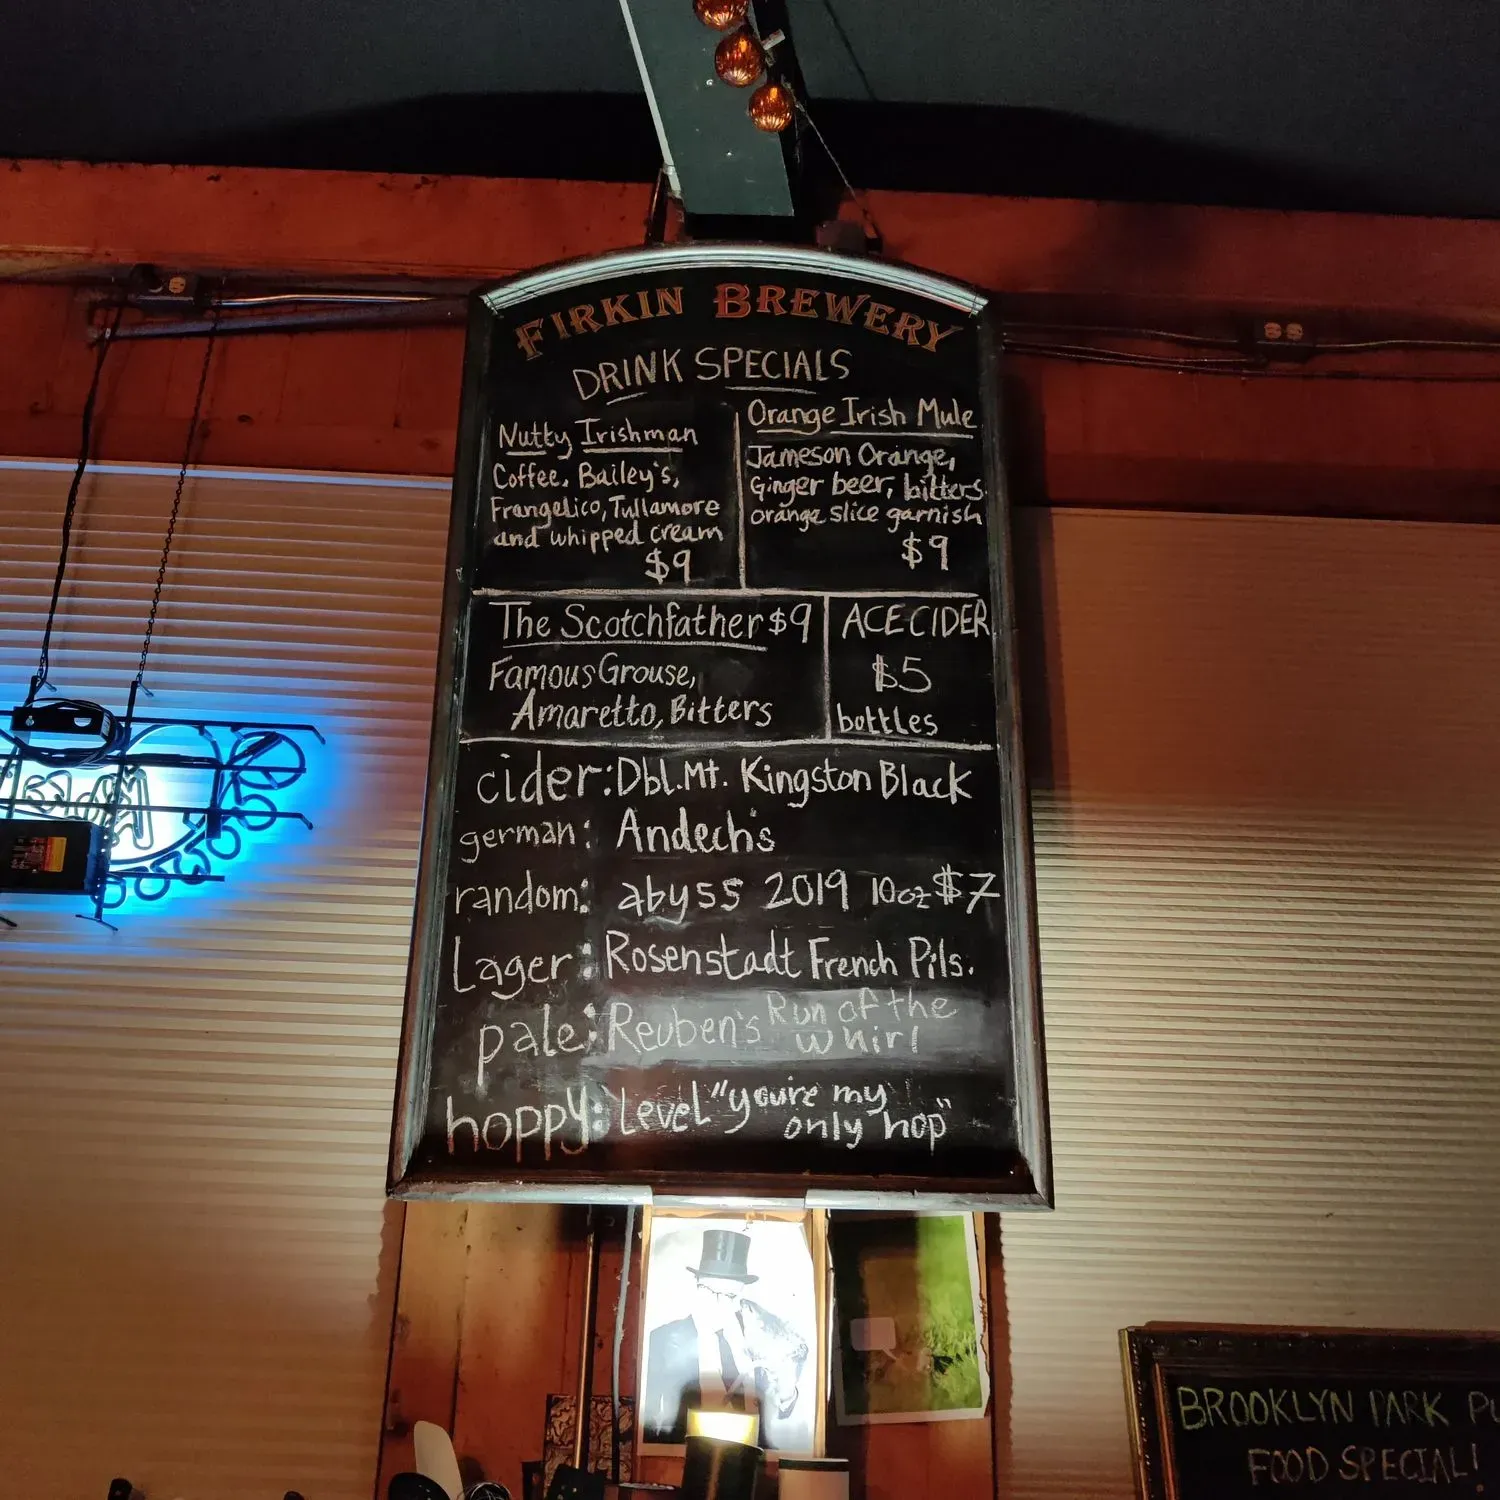 FIRKIN BREWERY
DRINK SPECIALS
Nutty Irishman
Coffee, Bailey's,
Frangelico, Tullamore
and whipped cream
$9
Orange Irish Mule
Jameson Orange,
Ginger beer, bitters.
orange slice garnish
$9
The Scotchfather $9
Famous Grouse,
Amaretto, Bitters
ACE CIDER
$5
bottles
cider: Dbl. Mt. Kingston Black
german: Andech's
random: abyss 2019 10oz $7
Lager: Rosenstadt French Pils.
pale: Reuben's Run of the
whirl
hoppy: Level "you're my
only hop"
BROOKLYN PARK PU
FOOD SPECIAL!